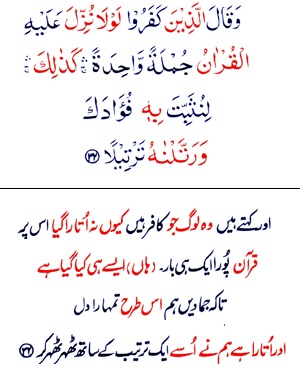 وَقَالَ الَّذِيْنَ كَفَرُوْا لَوْلَا نُزِّلَ عَلَيْهِ
الْقُرْاٰنُ جُمْلَةً وَّاحِدَةً ۛۚ كَذٰلِكَ ۛۚ
لِنُثَبِّتَ بِهٖ فُؤَادَكَ
وَرَتَّلْنٰهُ تَرْتِيْلًا ﴿۳۲﴾
اور کہتے ہیں وہ لوگ جو کافر ہیں کیوں نہ اُتارا گیا اس پر
قرآن پُورا ایک ہی بار۔ (ہاں) ایسے ہی کیا گیا ہے
تاکہ جمادیں ہم اس طرح تمہارا دل
اور اُتارا ہے ہم نے اُسے ایک ترتیب کے ساتھ ٹھہر ٹھہر کر ﴿۳۲﴾